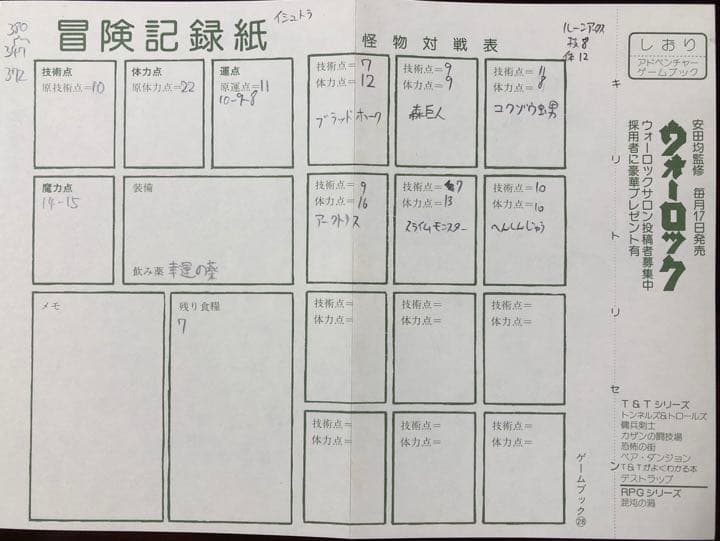 380
347
372
冒険記録紙
イシュトラ
怪物対戦表
ルーンアックス
技8
体12
技術点
原技術点=10
体力点
原体力点=22
運点
原運点=11
10-9-8
魔力点
14-15
装備
飲み薬 幸運の薬
メモ
残り食糧
7
技術点=7
体力点=12
ブラッドホーク
技術点=9
体力点=9
森巨人
技術点=11
体力点=8
コクゾウ虫男
技術点=9
体力点=16
アークトリス
技術点=7
体力点=13
スライムモンスター
技術点=10
体力点=10
へんしんじゅう
技術点=
体力点=
技術点=
体力点=
技術点=
体力点=
技術点=
体力点=
技術点=
体力点=
技術点=
体力点=
ゲームブック㉘
キリトリセン
しおり
アドベンチャー
ゲームブック
安田均監修 毎月17日発売
ウォーロック
ウォーロックサロン投稿者募集中
採用者に豪華プレゼント有
T&Tシリーズ
トンネルズ&トロールズ
傭兵剣士
カザンの闘技場
恐怖の街
ベア・ダンジョン
T&Tがよくわかる本
デストラップ
RPGシリーズ
混沌の渦